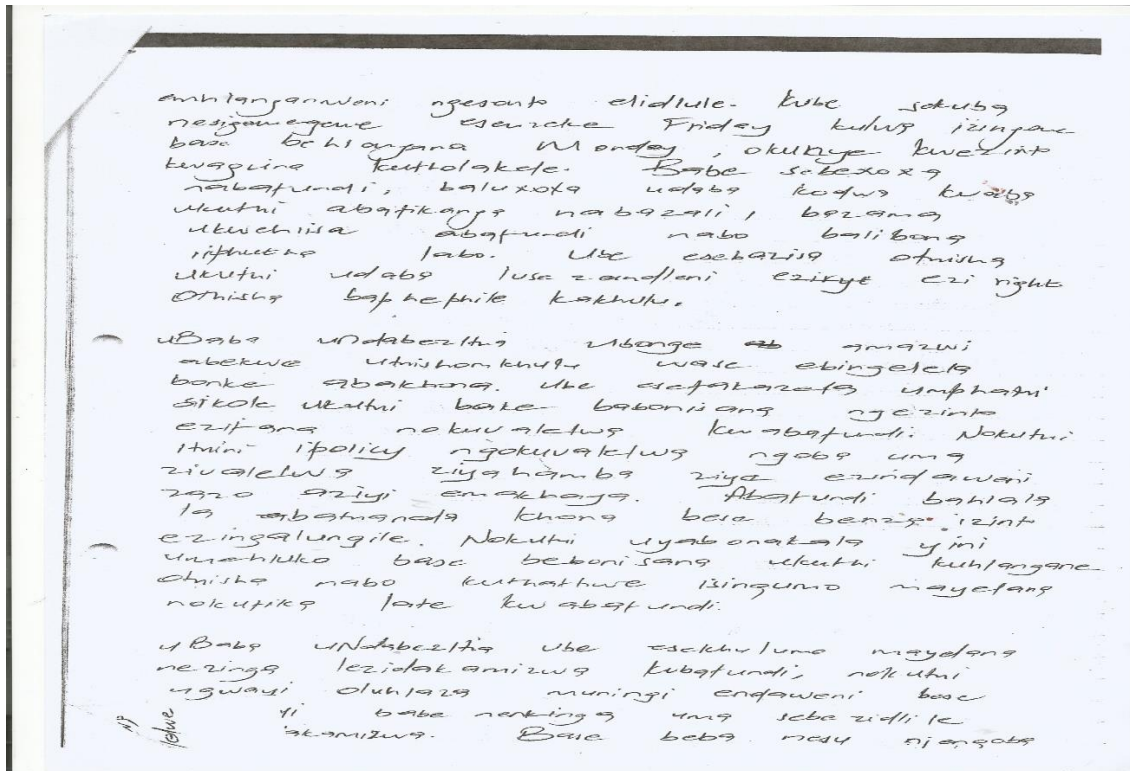 emhlanganweni ngesonto elidlule. Kube sekuba
nesigamegwe esenzeke Friday kulwa izingane
base behlangana Monday, okunye kwezinto
kwagcina kutholakele. Babe sebexoxa
nabafundi, baluxoxa udaba kodwa kwaba
ukuthi abafikanga nabazali, bazama
ukwehlisa abafundi nabo balibona
iphutha labo. Ube esebazisa othisha
ukuthi udaba luse zandleni ezikye ezi right
Othisha baphephile kakhulu.
uBaba uNdabezitha ubonge amazwi
abekwe uthishomkhulu wase ebingelela
bonke abakhona. Ube esefakazela umphathi
sikole ukuthi bake babonisana ngezinto
ezifana nokuvalelwa kwabafundi. Nokuthi
ithini ipolicy ngokuvalelwa ngoba uma
zivalelwa ziyahamba ziye ezindaweni
zazo aziyi emakhaya. Abafundi bahlala
la abathanda khona bese benza izint
ezingalungile. Nokuthi uyabonakala yini
umehluko base bebonisana ukuthi kuhlangane
othisha nabo kuthathwe isinqumo mayelana
nokufika late kwabafundi.
uBaba uNdabezitha ube esekhuluma mayelana
nezinga lezidakamizwa kubafundi, nokuthi
ugwayi oluhlaza muningi endaweni bese
yi babe nenkinga uma sebe zidlile
akamizwa. Base beba nesu njengoba